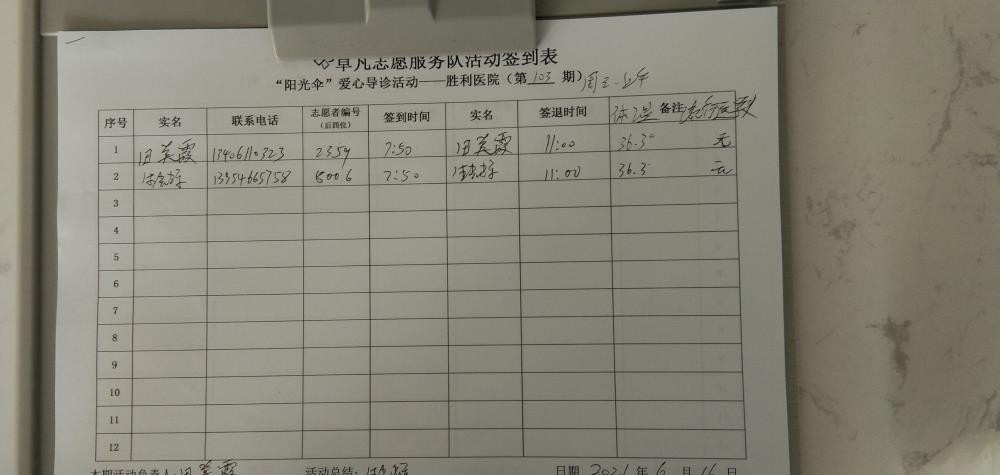 卓凡志愿服务队活动签到表
“阳光伞”爱心导诊活动——胜利医院（第103期）周三.上午
序号 实名 联系电话 志愿者编号（后四位） 签到时间 实名 签退时间 体温 备注
1 田美霞 13406110323 2359 7:50 田美霞 11:00 36.3° 无
2 13954665758 5006 7:50 11:00 36.3° 无
3
4
5
6
7
8
9
10
11
12
本期活动负责人:田美霞 活动总结: 日期 2021年6月16日